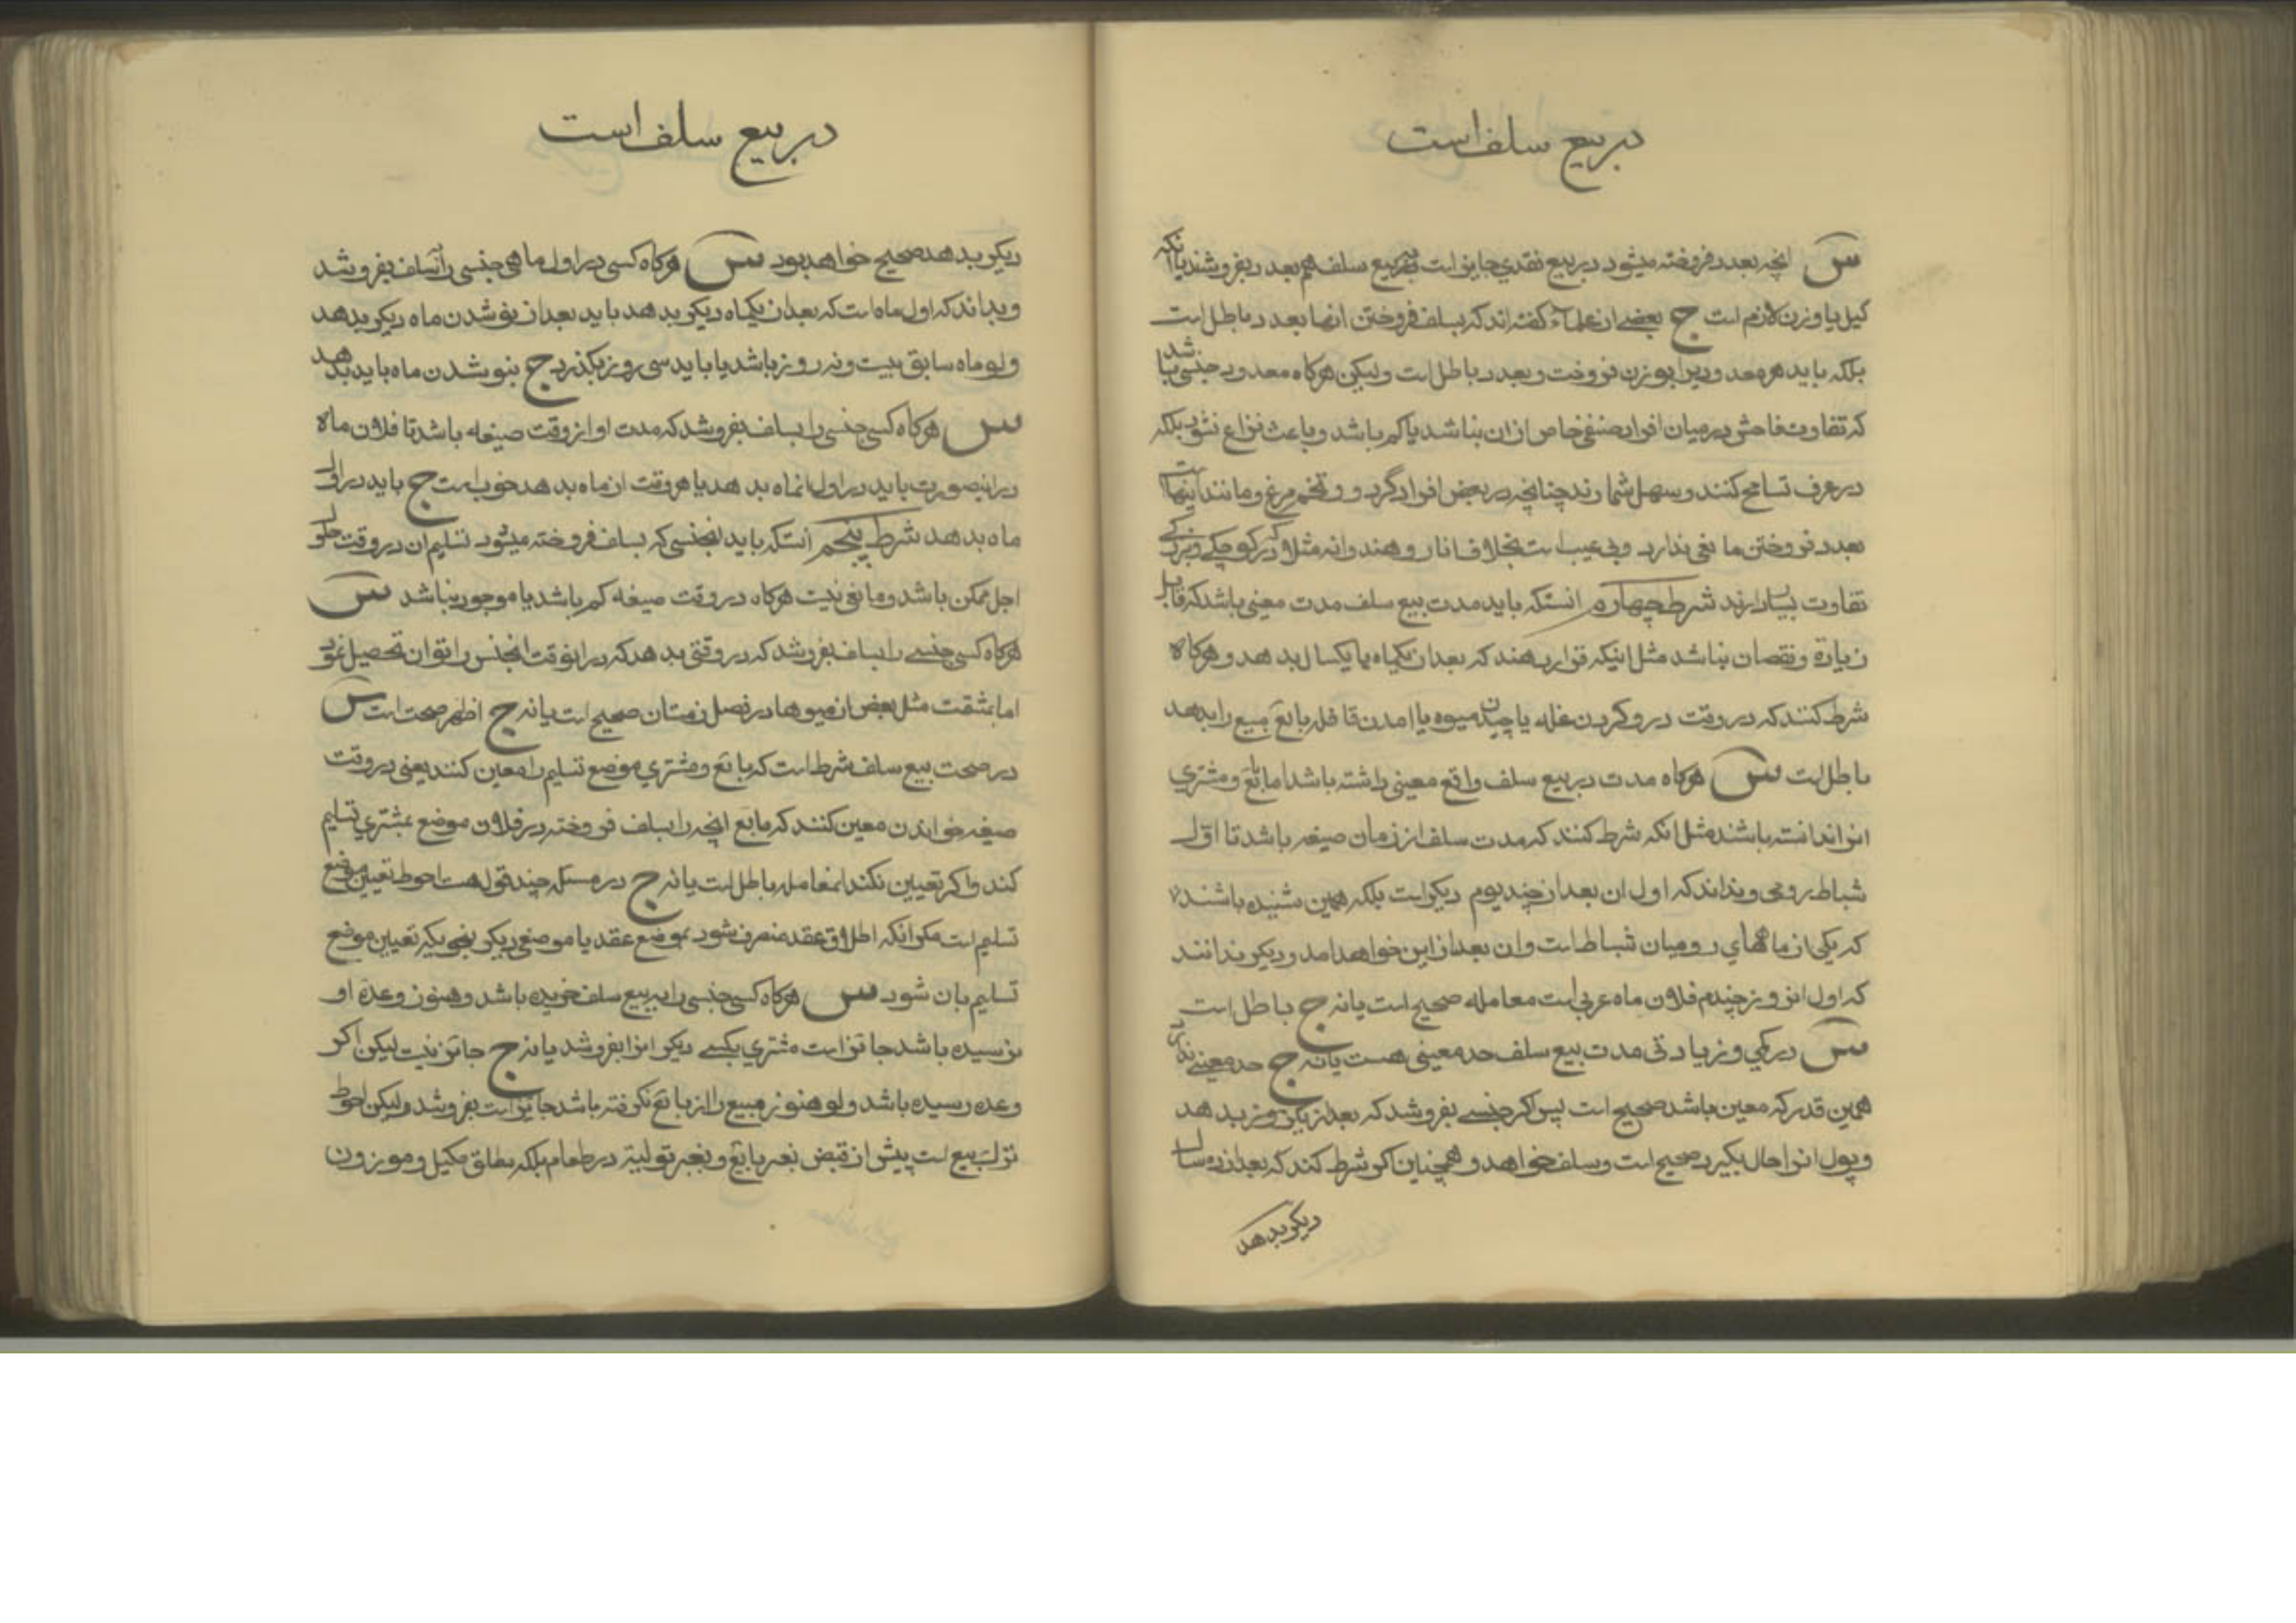 در بیع سلف است
س انچه بعدد فروخته میشود در بیع نقدی جایز است که در بیع سلف هم بعدد بفروشند یا انکه
کیل یا وزن لازم است ج بعضی از علماء کفته اند که بسلف فروختن انها بعدد باطل است
بلکه باید هر معدودی را بوزن فروخت و بعدد باطل است ولیکن هرکاه معدود جنسی باشد
که تفاوت فاحش در میان افراد صنف خاص از ان نباشد یا کم باشد و باعث نزاع نشود بلکه
در عرف تسامح کنند و سهل شمارند چنانچه در بعض افراد کردو و تخم مرغ و مانند اینهاست
بعدد فروختن مانعی ندارد و بی عیب است بخلاف انار و هندوانه مثلا که در کوچکی و بزرکی
تفاوت بسیار دارند شرط چهارم انستکه باید مدت بیع سلف مدت معینی باشد که قابل
زیادة و نقصان نباشد مثل اینکه قرار دهند که بعد از یکماه یا یکسال بدهد و هرکاه
شرط کنند که در وقت درو کردن غله یا چیدن میوه یا امدن قافله بایع مبیع را بدهد
باطل است س هرکاه مدت در بیع سلف واقع معینی داشته باشد اما بایع و مشتری
انرا ندانسته باشند مثل انکه شرط کنند که مدت سلف از زمان صیغه باشد تا اول
شباط رومی و نداند که اول ان بعد از چند یوم دیکر است بلکه همین شنیده باشند
که یکی از ماههای رومیان شباط است و ان بعد از این خواهد امد و دیکر ندانند
که اول انروز چندم فلان ماه عربی است معامله صحیح است یا نه ج باطل است
س در کمی و زیادتی مدت بیع سلف حد معینی هست یا نه ج حد معینی ندارد
همین قدر که معین باشد صحیح است پس اکر جنسی بفروشد که بعد از یکروز بدهد
و پول انرا حال بکیرد صحیح است و سلف خواهد و همچنین اکر شرط کند که بعد از ده سال
دیکر بدهد
در بیع سلف است
دیکر بدهد صحیح خواهد بود س هرکاه کسی در اول ماهی جنسی را بسلف بفروشد
و بداند که اول ماه است که بعد از یکماه دیکر بدهد باید بعد از نو شدن ماه دیکر بدهد
و لو ماه سابق بیست و نه روز باشد یا باید سی روز بکذرد ج بنو شدن ماه باید بدهد
س هرکاه کسی جنسی را بسلف بفروشد که مدت او از وقت صیغه باشد تا فلان ماه
در اینصورت باید در اول انماه بدهد یا هر وقت از ماه بدهد خوب است ج باید در اول
ماه بدهد شرط پنجم انستکه باید انجنسی که بسلف فروخته میشود تسلیم ان در وقت حلول
اجل ممکن باشد و مانعی نیست هرکاه در وقت صیغه کم باشد یا موجود نباشد س
هرکاه کسی جنسی را بسلف بفروشد که در وقتی بدهد که در انوقت انجنس را توان تحصیل نمود
اما بمشقت مثل بعض از میوها در فصل زمستان صحیح است یا نه ج اظهر صحت است س
در صحت بیع سلف شرط است که بایع و مشتری موضع تسلیم را معین کنند یعنی در وقت
صیغه خواندن معین کنند که بایع انچه را بسلف فروخته در فلان موضع بمشتری تسلیم
کند و اکر تعیین نکند انمعامله باطل است یا نه ج در مسئله چند قول هست احوط تعیین موضع
تسلیم است مکر انکه اطلاق عقد منصرف شود بموضع عقد یا موضعی دیکر بنحوی که تعیین موضع
تسلیم بان شود س هرکاه کسی جنسی را به بیع سلف خریده باشد و هنوز وعده او
نرسیده باشد جائز است مشتری بکسی دیکر انرا بفروشد یا نه ج جائز نیست لیکن اکر
وعده رسیده باشد و لو هنوز مبیع را از بایع نکرفته باشد جائز است بفروشد ولیکن احوط
ترک بیع است پیش از قبض بغیر بایع و بغیر تولیة در طعام بلکه مطلق مکیل و موزون